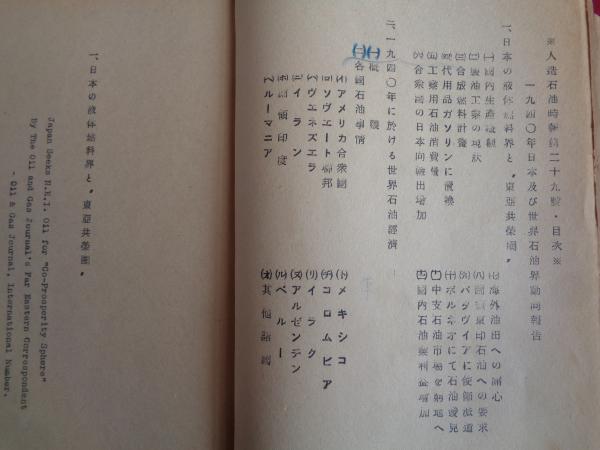 ※人造石油時報第二十九號・目次※
一九四〇年日本及び世界石油界動向報告
一、日本の液体燃料界と〝東亞共榮圈〟
(一)國内生産
(二)製油工業の現狀
(三)合成燃料計畫
(四)代用品ガソリンに置換
(五)工業用石油消費
(六)合衆國の日本向輸出增加
(七)海外油田への關心
(八)蘭領東印石油への要求
(九)バタヴイアに使節派遣
(十)ボルネオにて石油發見
(十一)中支石油市場を
(十二)國内石油
二、一九四〇年に於ける世界石油經濟
(一)概觀
(二)各國石油事情
(イ)アメリカ合衆國
(ロ)ソヴエート聯邦
(ハ)ヴエネズエラ
(ニ)イラン
(ホ)蘭領印度
(ヘ)ルーマニア
(ト)メキシコ
(チ)コロムビア
(リ)イラク
(ヌ)アルゼンチン
(ル)ペルー
(オ)其他諸國
一、日本の液体燃料界と〝東亞共榮圈〟
Japan Seeks N.E.I. Oil for "Co-Prosperity Sphere"
By The Oil and Gas Journal's Far Eastern Correspondent
- Oil & Gas Journal, International Number.